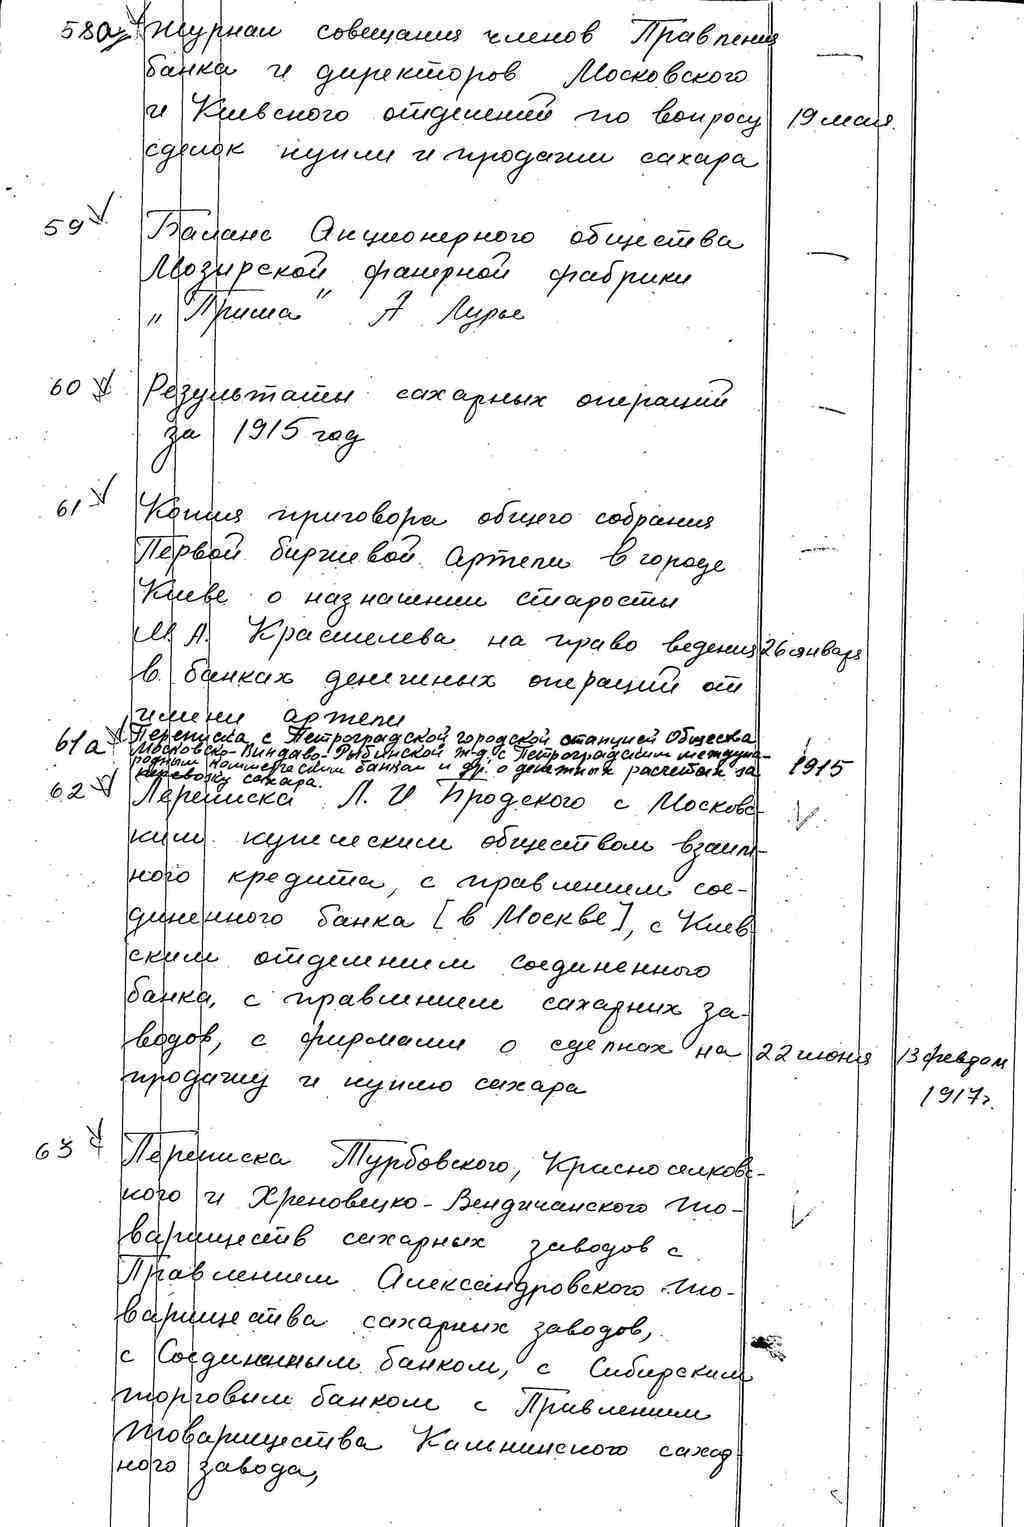 58а Журнал совещания членов Правления
банка и директоров Московского
и Киевского отделений по вопросу 19 мая
сделок купли и продажи сахара
59 Баланс Акционерного общества
Мозырской фанерной фабрики
„Прима" А Лурье
60 Результаты сахарных операций
за 1915 год
61 Копия приговора общего собрания
Первой биржевой артели в городе
Киеве о назначении старосты
М. А. Красилева на право ведения 26 января
в банках денежных операций от
имени артели
61а Переписка с Петроградской городской станцией Общества
Московско-Виндаво-Рыбинской ж-д, с Петроградским междуна-
родным коммерческим банком и др. о денежных расчетах за 1915
перевозку сахара.
62 Переписка Л. И Бродского с Московс-
ким купеческим обществом взаим-
ного кредита, с правлением сое-
диненного банка [в Москве], с Киев
ским отделением соединенного
банка, с правлением сахарных за-
водов, с фирмами о сделках на 22 июня 13 феврал
продажу и куплю сахара 1917г.
63 Переписка Турбовского, Красноселковс-
кого и Хреновецко-Вендичанского то-
вариществ сахарных заводов с
Правлением Александровского то-
варищества сахарных заводов,
с Соединенным банком, с Сибирским
торговым банком с Правлением
Товарищества Кальникского сахар
ного завода,